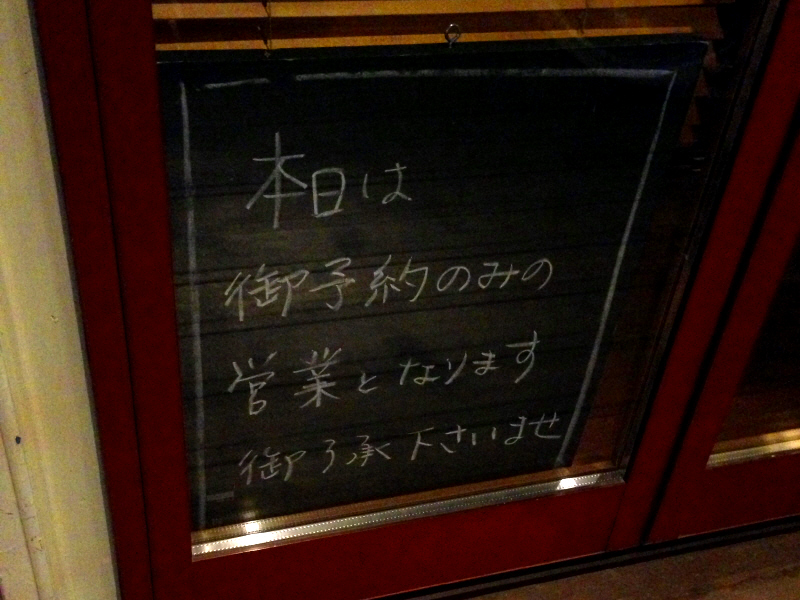 本日は
御予約のみの
営業となります
御了承下さいませ